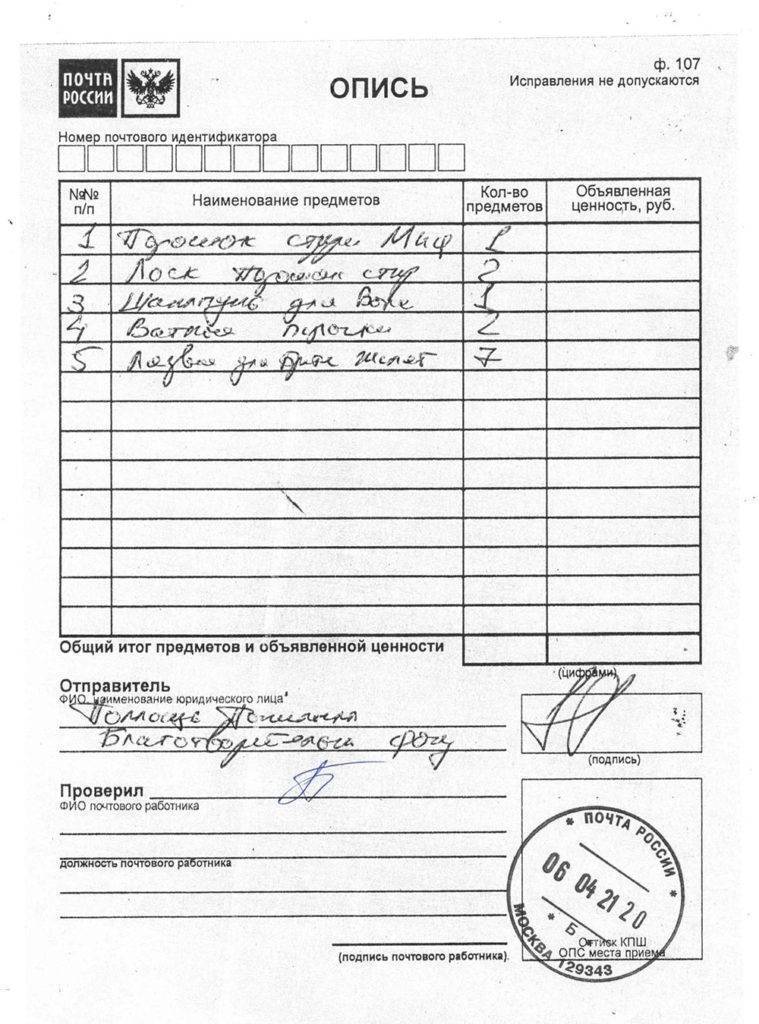 ПОЧТА
РОССИИ
ф. 107
Исправления не допускаются
ОПИСЬ
Номер почтового идентификатора
№№ п/п
Наименование предметов
Кол-во предметов
Объявленная ценность, руб.
1 Порошок стир Миф 1
2 Лоск порошок стир 2
3 Шампунь для Воло 1
4 Ватные палочки 2
5 для 7
Общий итог предметов и объявленной ценности
(цифрами)
Отправитель
ФИО, наименование юридического лица
Помощь
фонд
(подпись)
Проверил
ФИО почтового работника
должность почтового работника
(подпись почтового работника)
ПОЧТА РОССИИ
06 04 21 20
Б
МОСКВА 129343
Оттиск КПШ
ОПС места приема